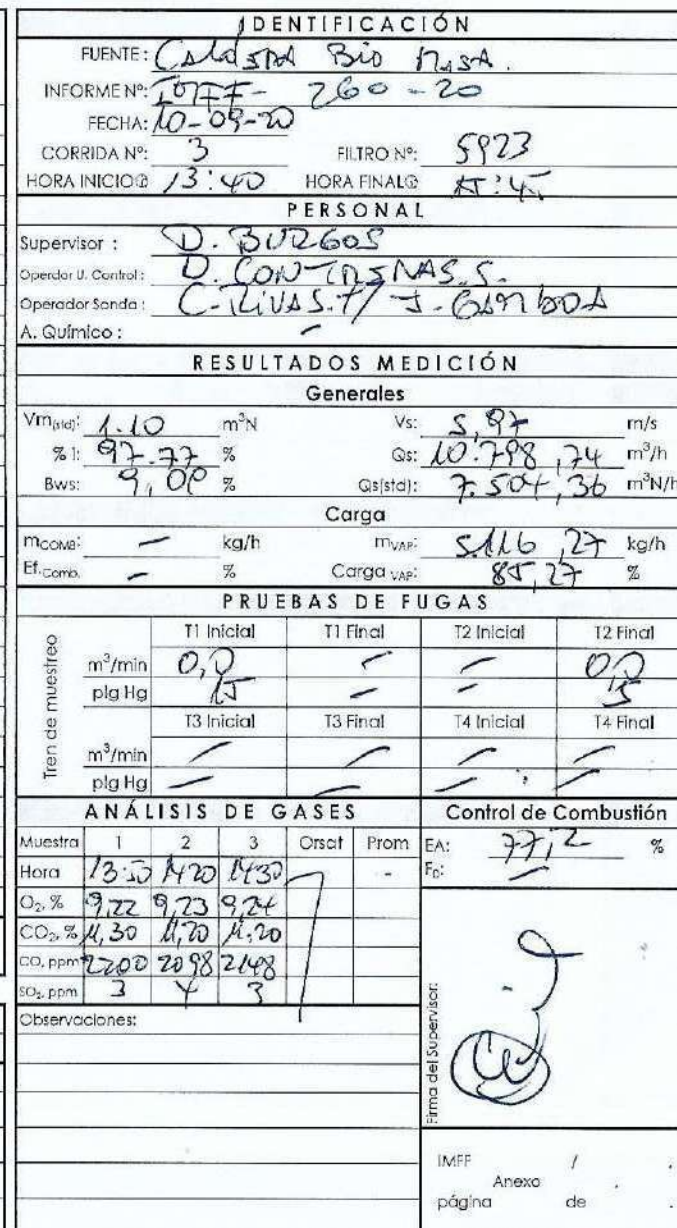 IDENTIFICACIÓN
FUENTE: Caldera Bio Masa.
INFORME Nº: 260-20
FECHA: 10-09-20
CORRIDA Nº: 3 FILTRO Nº: 5923
HORA INICIO 13:40 HORA FINAL
PERSONAL
Supervisor : D. BURGOS
Operdor U. Control : D. CONTRERAS. S.
Operador Sonda : C. RIVAS. F/ J. GAMBOA
A. Químico : -
RESULTADOS MEDICIÓN
Generales
Vm(std): 1.10 m³N Vs: 5,97 m/s
% I: 97.77 % Qs: 10.798,74 m³/h
Bws: 9,00 % Qs(std): 7.504,36 m³N/h
Carga
mCOMB: - kg/h mVAP: 5.116,27 kg/h
Ef.Comb. - % Carga VAP: 85,27 %
PRUEBAS DE FUGAS
Tren de muestreo
T1 Inicial T1 Final T2 Inicial T2 Final
m³/min 0,0 - - 0,0
plg Hg 15 - - 5
T3 Inicial T3 Final T4 Inicial T4 Final
m³/min - - - -
plg Hg - - - -
ANÁLISIS DE GASES Control de Combustión
Muestra 1 2 3 Orsat Prom EA: 77,2 %
Hora 13:50 1420 1430 - F₀: -
O₂, % 9,22 9,23 9,24
CO₂, % 11,30 11,20 11,20
CO, ppm 2200 2098 2148
SO₂, ppm 3 4 3
Observaciones:
Firma del Supervisor:
IMFF / .
Anexo .
página de .